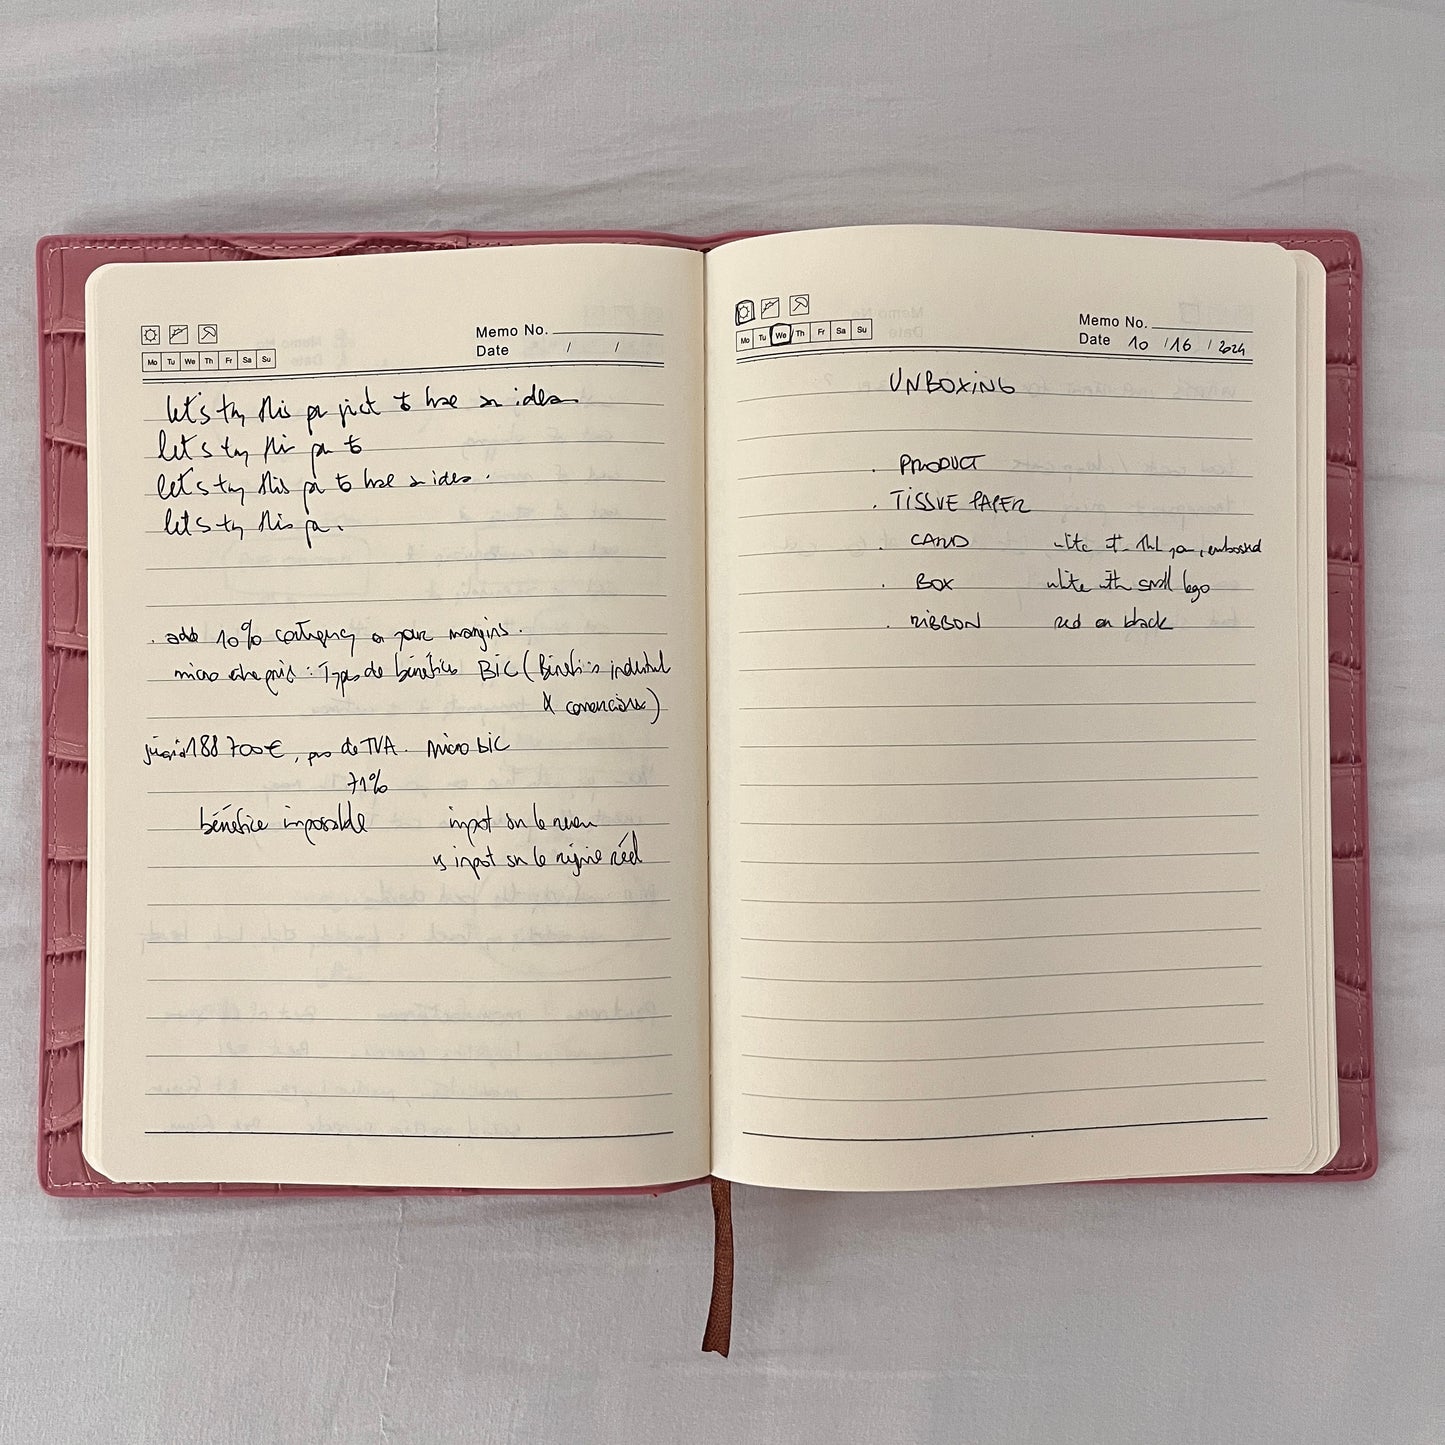 Memo No.
Mo Tu We Th Fr Sa Su
Date / /
let's try this pen just to have an idea
let's try this pen to
let's try this pen to have an idea.
let's try this pen.
. add 10% contingency on your margins.
micro entreprise : Types de bénéfices BIC (Bénéfices industriel
& commerciaux)
jusqu'à 188 700€, pas de TVA. micro BIC
71%
bénéfice imposable impot sur le revenu
vs impot sur le régime réel
Memo No.
Mo Tu We Th Fr Sa Su
Date 10 / 16 / 2024
UNBOXING
. PRODUCT
. TISSUE PAPER
. CARD embossed
. BOX white with small logo
. RIBBON red on black